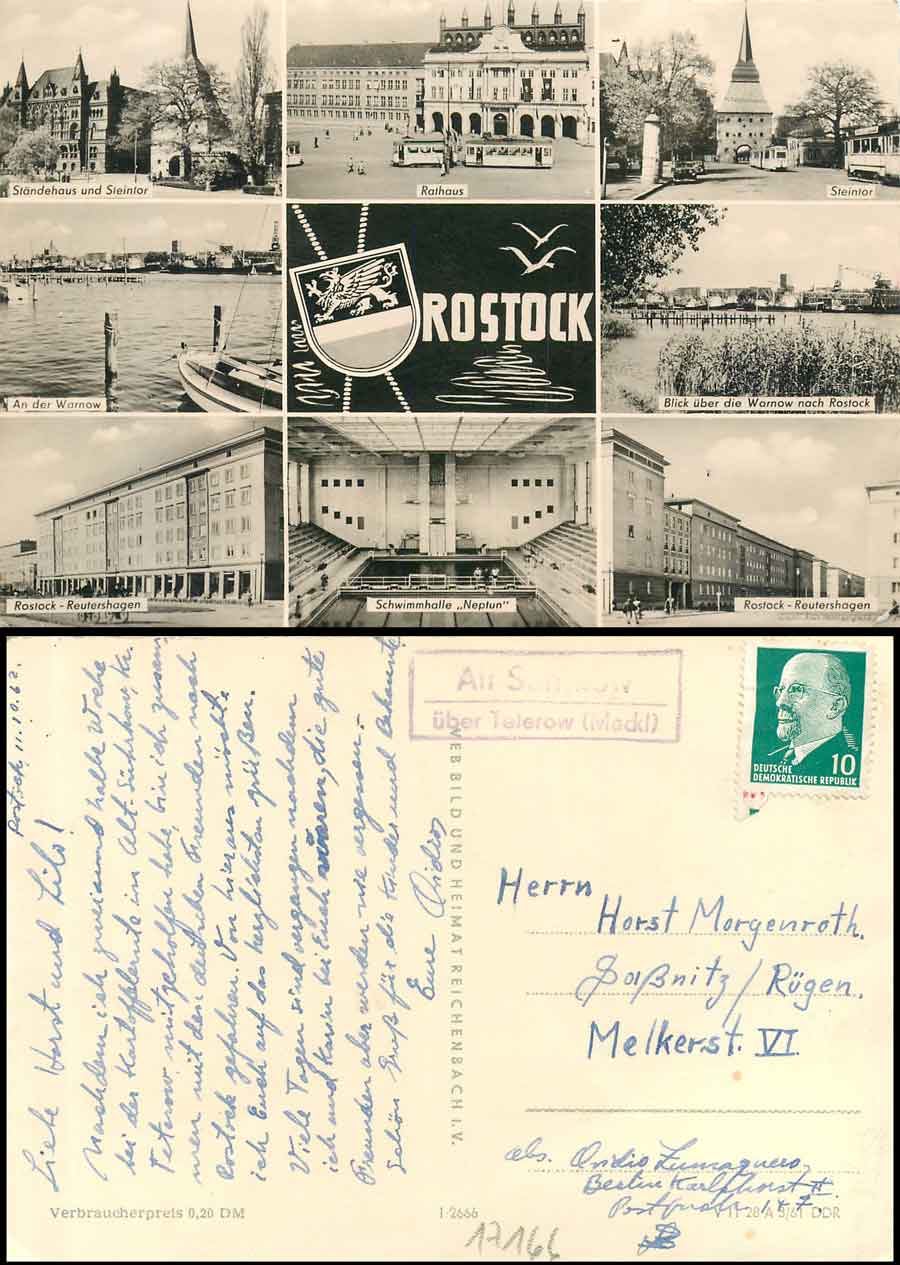 Ständehaus und Steintor
Rathaus
Steintor
An der Warnow
ROSTOCK
Blick über die Warnow nach Rostock
Rostock - Reutershagen
Schwimmhalle „Neptun"
Rostock - Reutershagen
Rostock, 11. 10. 62.
Liebe Horst und Lilo!
Nachdem ich zwei und halbe Woche
bei der Kartoffelernte in Alt-Sührkow, kr.
Teterow mitgeholfen habe, bin ich zusam
men mit den deutschen Freunden nach
Rostock gefahren. Von hier aus möchte
ich Euch auf das herzlichsten grüßen.
Viele Tagen sind vergangen nachdem
ich und Karin bei Euch waren, die gute
Freunden aber werden nie vergessen.
Schön Gruß für die Kinder und Bekannte
Eure Ovidio
Alt Sührkow
über Teterow (Meckl)
DEUTSCHE
DEMOKRATISCHE REPUBLIK 10
VEB BILD UND HEIMAT REICHENBACH I. V.
Herrn
Horst Morgenroth.
Saßnitz/Rügen.
Melkerst. VI.
abs. Ovidio
Berlin Karlshorst II
Verbraucherpreis 0,20 DM
I 2666
V 11 28 A 5/61 DDR
17166